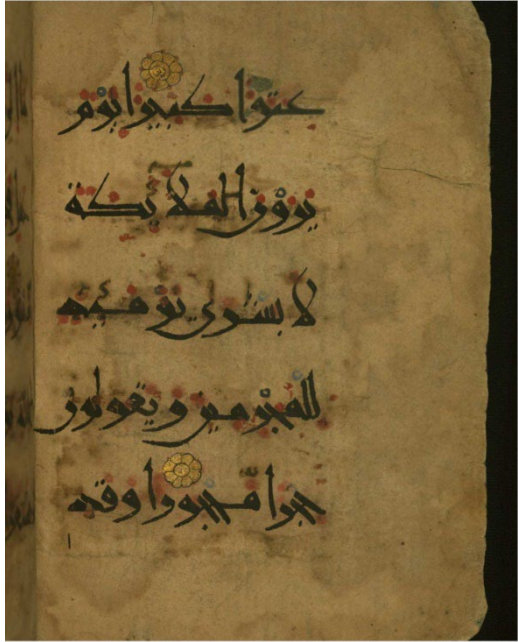 عتوا كبيرا يوم
يرون الملائكة
لا بشرى يومئذ
للمجرمين ويقولون
حجرا محجورا وقد